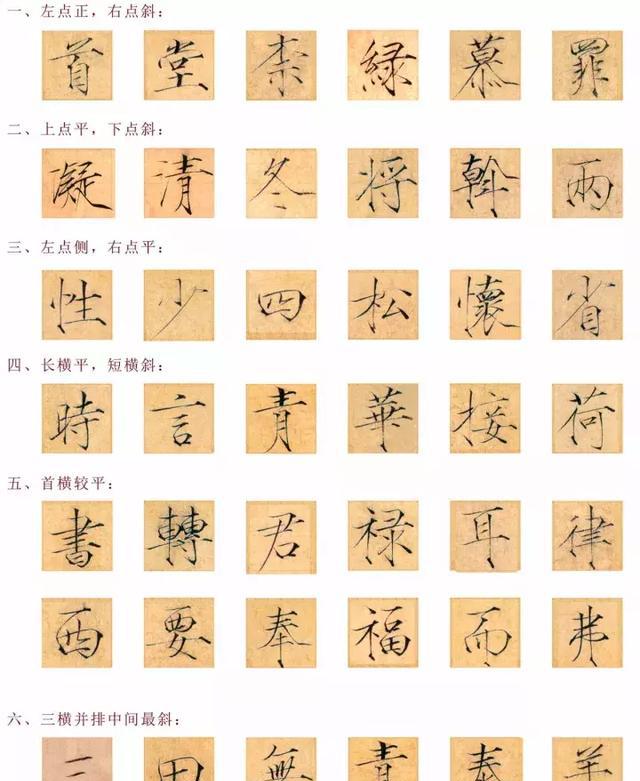 一、左点正，右点斜：
首 堂 柰 緑 慕 罪
二、上点平，下点斜：
凝 清 冬 将 斡 两
三、左点侧，右点平：
性 少 四 松 懷 省
四、长横平，短横斜：
時 言 青 華 接 荷
五、首横较平：
書 轉 君 禄 耳 律
西 要 奉 福 而 弗
六、三横并排中间最斜：
三 田 無 青 春 羊